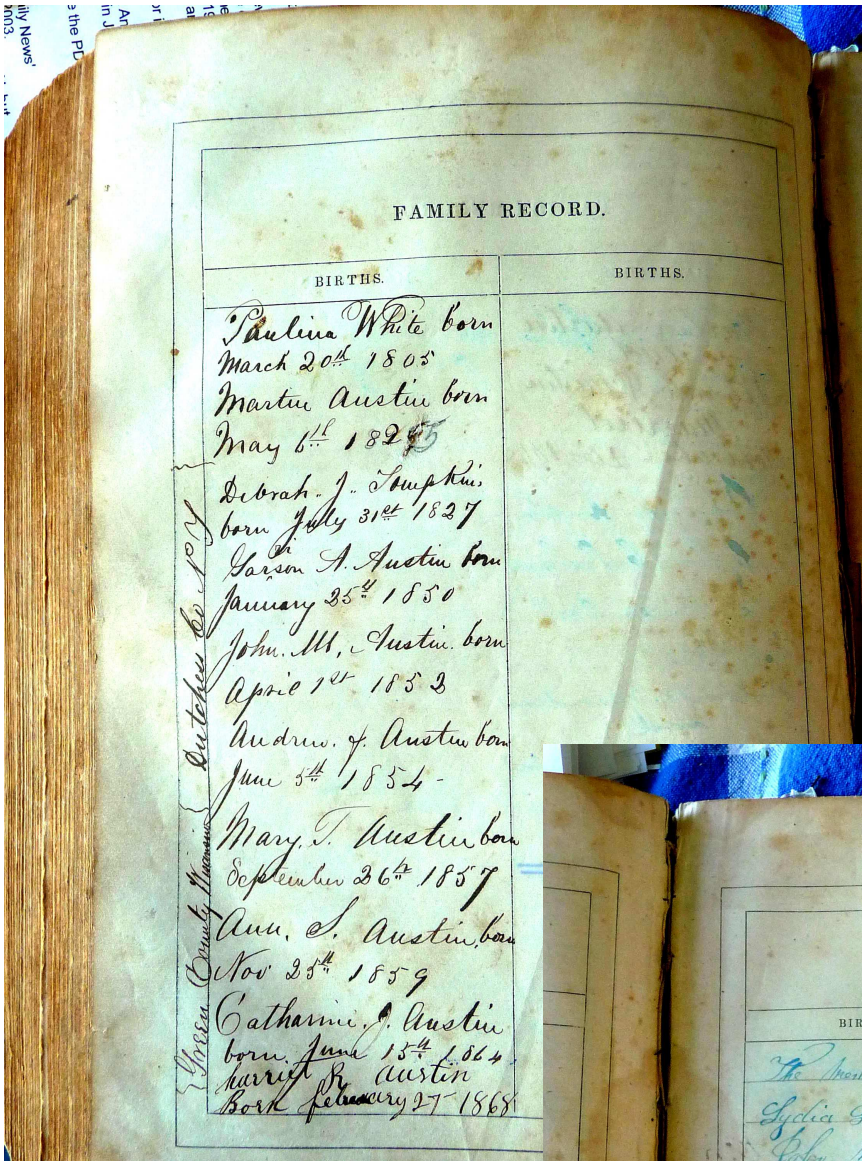 ily News'
2003.
e the PD
in J
An
or i
19
FAMILY RECORD.
BIRTHS.
BIRTHS.
Paulina White born
March 20th 1805
Martin Austin born
May 6th 1825
Debrah. J. Tompkins
born July 31st 1827
A. Austin born
January 25th 1850
John. M. Austin. born
April 1st 1852
Andrew. J. Austin born
June 5th 1854-
Mary. T. Austin born
September 26th 1857
Ann. S. Austin, born
Nov 25th 1859
Catharine. J. Austin
born. June 15th 1864
harriet R Austin
Born february 27 1868
Dutchess Co N Y
Green County
BIR
The
Lydia